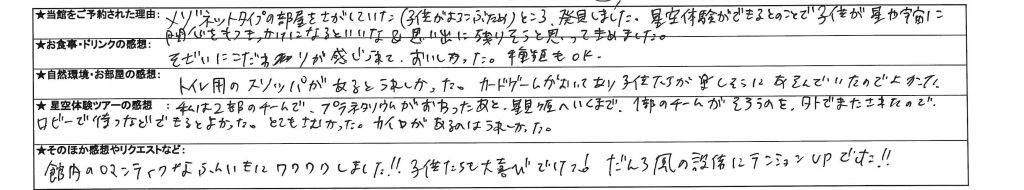 ★当館をご予約された理由: メゾネットタイプの部屋をさがしていた(子供がよろこぶため)ところ、発見しました。星空体験ができるとのことで子供が星や宇宙に
関心をもつきっかけになるといいな & 思い出に残りそうと思ってきめました。
★お食事・ドリンクの感想: そざいにこだわりが感じられて、おいしかった。種類もOK.
★自然環境・お部屋の感想: トイレ用のスリッパがあるとうれしかった。カードゲームがおいてあり子供たちが楽しそうにあそんでいたのでよかった。
★ 星空体験ツアーの感想 : 私は2部のチームで、プラネタリウムがおわったあと、星見ヶ丘へいくまで、1部のチームがそろうのを、外でまたされたので、
ロビーで待つなどできるとよかった。とてもさむかった。カイロがあるのはうれしかった。
★そのほか感想やリクエストなど:
館内のロマンティックなふんいきにワクワクしました!! 子供たちも大喜びでした! だんろ風の設備にテンションUPでした!!